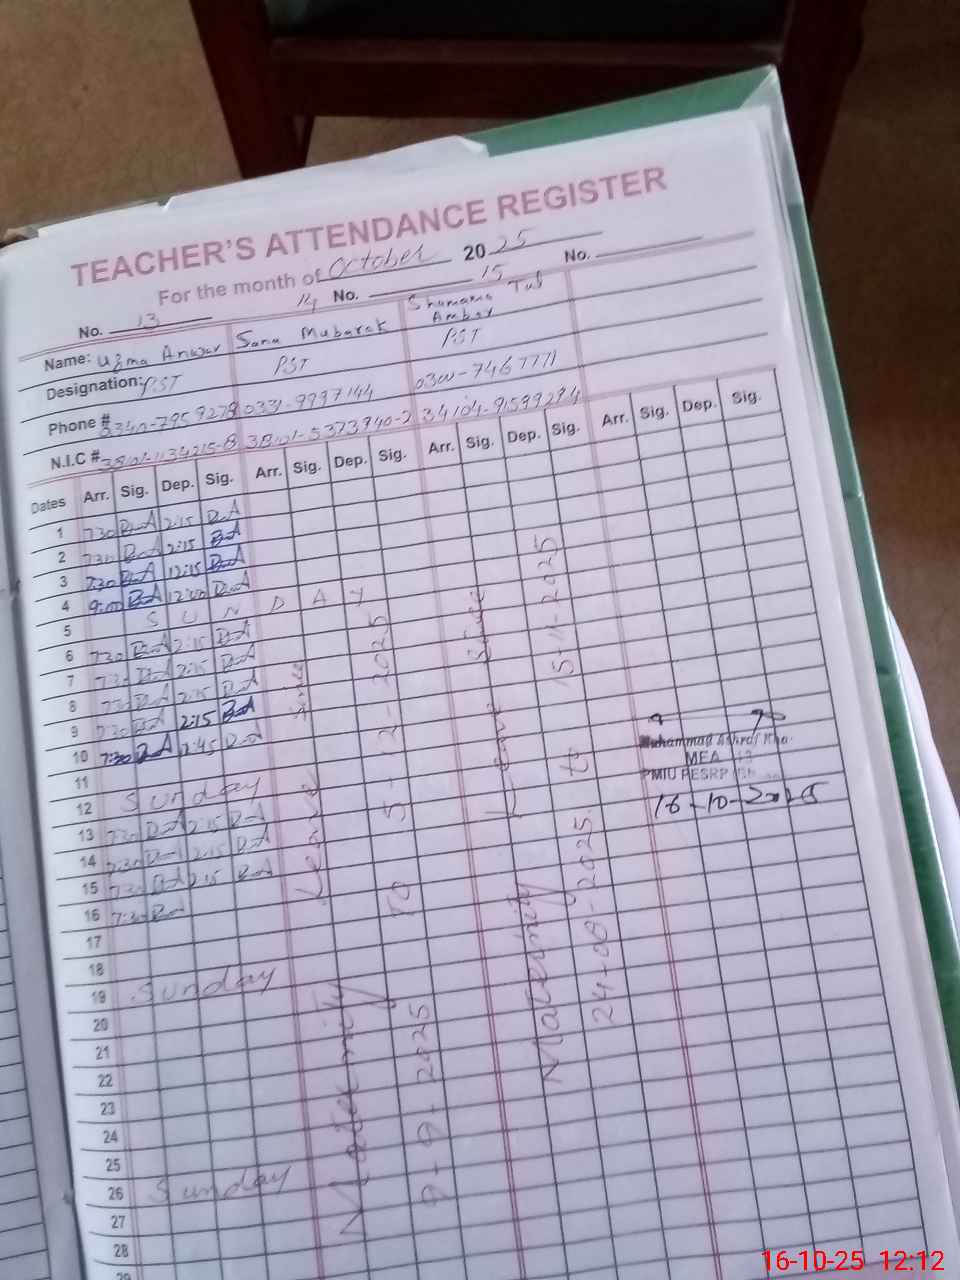 TEACHER'S ATTENDANCE REGISTER
For the month of October 2025
No. 13 14 No. 15 No.
Name: Uzma Anwar Sana Mubarak Shumama Tul Ambar
Designation: PST PST PST
Phone # 0340-7959278 0331-9997144 0300-7467771
N.I.C # 38101-1134215-8 38101-5373940-2 34104-91599294
Dates Arr. Sig. Dep. Sig. Arr. Sig. Dep. Sig. Arr. Sig. Dep. Sig. Arr. Sig. Dep. Sig.
1 7:30 2:15
2 7:30 2:15
3 7:30 12:15
4 9:00 12:00
5 S U N D A Y
6 7:30 2:15
7 7:30 2:15
8 7:30 2:15
9 7:30 2:15
10 7:30 2:45
11
12 Sunday
13 7:30 2:15
14 7:30 2:15
15 7:30 2:15
16 7:30
17
18
19 Sunday
20
21
22
23
24
25
26 Sunday
27
28
29
Maternity Leave Since
9-9-2025 To 5-2-2025
Maternity Leave Since
24-08-2025 to 15-11-2025
Muhammad Ashraf Kha
MEA 13
PMIU PESRP
16-10-2025
16-10-25 12:12